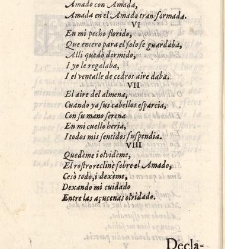 Amado con Amada,
Amada en el Amado transformada.
VI
En mi pecho florido,
Que entero para el solo se guardaba,
Alli quedò dormido,
I yo le regalaba,
I el ventalle de cedros aire daba.
VII
El aire del almena,
Cuando ya sus cabellos esparcia,
Con su mano serena
En mi cuello heria,
I todos mis sentidos suspendia.
VIII
Quedème i olvidème,
El rostro reclinè sobre el Amado;
Cesò todo, i dexème,
Dexando mi cuidado
Entre las açucenas olvidado.
Decla-